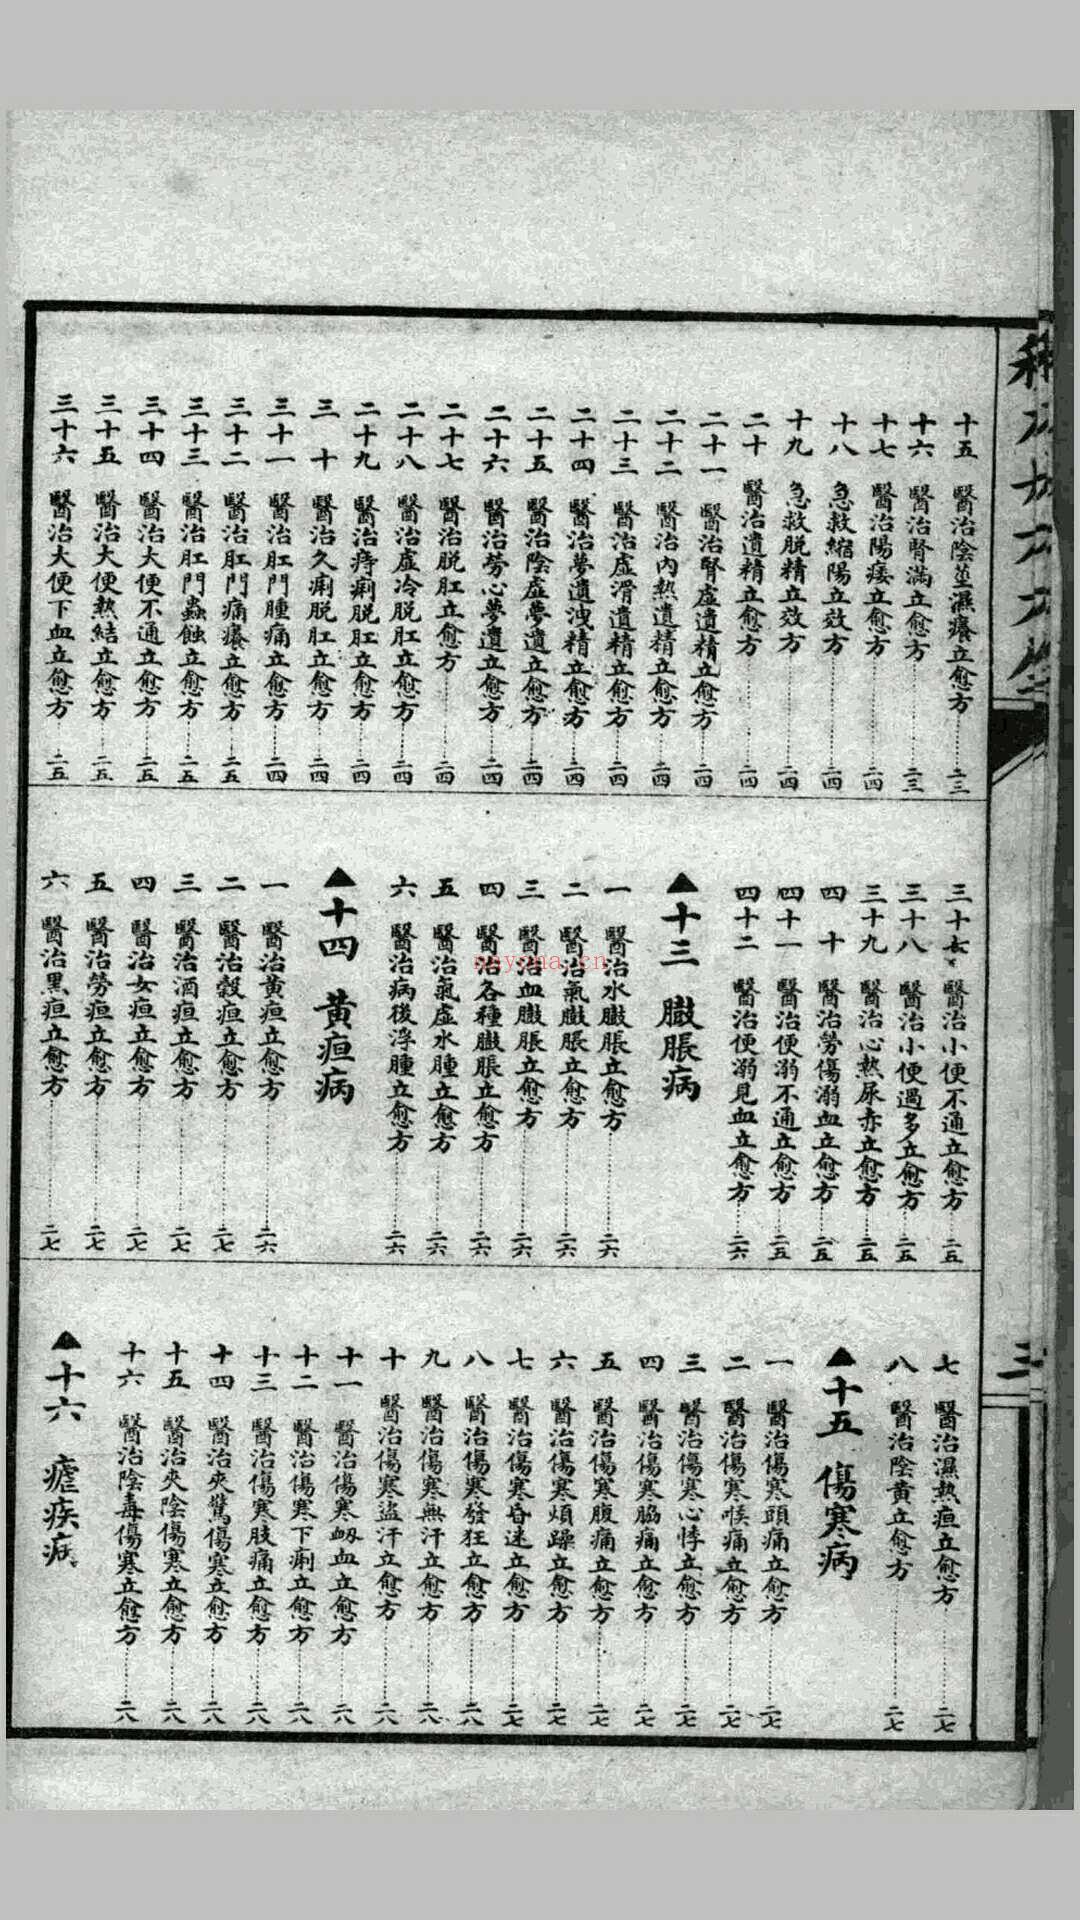 十五 醫治陰莖濕癢立愈方 二三
十六 醫治腎滿立愈方 二三
十七 醫治陽痿立愈方 二四
十八 急救縮陽立效方 二四
十九 急救脱精立效方 二四
二十 醫治遺精立愈方 二四
二十一 醫治腎虛遺精立愈方 二四
二十二 醫治內熱遺精立愈方 二四
二十三 醫治虛滑遺精立愈方 二四
二十四 醫治夢遺洩精立愈方 二四
二十五 醫治陰虛夢遺立愈方 二四
二十六 醫治勞心夢遺立愈方 二四
二十七 醫治脱肛立愈方 二四
二十八 醫治虛冷脱肛立愈方 二四
二十九 醫治痔痢脱肛立愈方 二四
三十 醫治久痢脱肛立愈方 二四
三十一 醫治肛門腫痛立愈方 二四
三十二 醫治肛門痛癢立愈方 二五
三十三 醫治肛門蟲蝕立愈方 二五
三十四 醫治大便不通立愈方 二五
三十五 醫治大便熱結立愈方 二五
三十六 醫治大便下血立愈方 二五
三十七 醫治小便不通立愈方 二五
三十八 醫治小便過多立愈方 二五
三十九 醫治心熱尿赤立愈方 二五
四十 醫治勞傷溺血立愈方 二五
四十一 醫治便溺不通立愈方 二五
四十二 醫治便溺見血立愈方 二六
▲十三 臌脹病
一 醫治水臌脹立愈方 二六
二 醫治氣臌脹立愈方 二六
三 醫治血臌脹立愈方 二六
四 醫治各種臌脹立愈方 二六
五 醫治氣虛水腫立愈方 二六
六 醫治病後浮腫立愈方 二六
▲十四 黃疸病
一 醫治黃疸立愈方 二六
二 醫治穀疸立愈方 二七
三 醫治酒疸立愈方 二七
四 醫治女疸立愈方 二七
五 醫治勞疸立愈方 二七
六 醫治黑疸立愈方 二七
七 醫治濕熱疸立愈方 二七
八 醫治陰黃立愈方 二七
▲十五 傷寒病
一 醫治傷寒頭痛立愈方 二七
二 醫治傷寒喉痛立愈方 二七
三 醫治傷寒心悸立愈方 二七
四 醫治傷寒脇痛立愈方 二七
五 醫治傷寒腹痛立愈方 二七
六 醫治傷寒煩躁立愈方 二七
七 醫治傷寒昏迷立愈方 二七
八 醫治傷寒發狂立愈方 二八
九 醫治傷寒無汗立愈方 二八
十 醫治傷寒盜汗立愈方 二八
十一 醫治傷寒衂血立愈方 二八
十二 醫治傷寒下痢立愈方 二八
十三 醫治傷寒肢痛立愈方 二八
十四 醫治夾驚傷寒立愈方 二八
十五 醫治夾陰傷寒立愈方 二八
十六 醫治陰毒傷寒立愈方 二八
▲十六 瘧疾病
三
nayona.cn